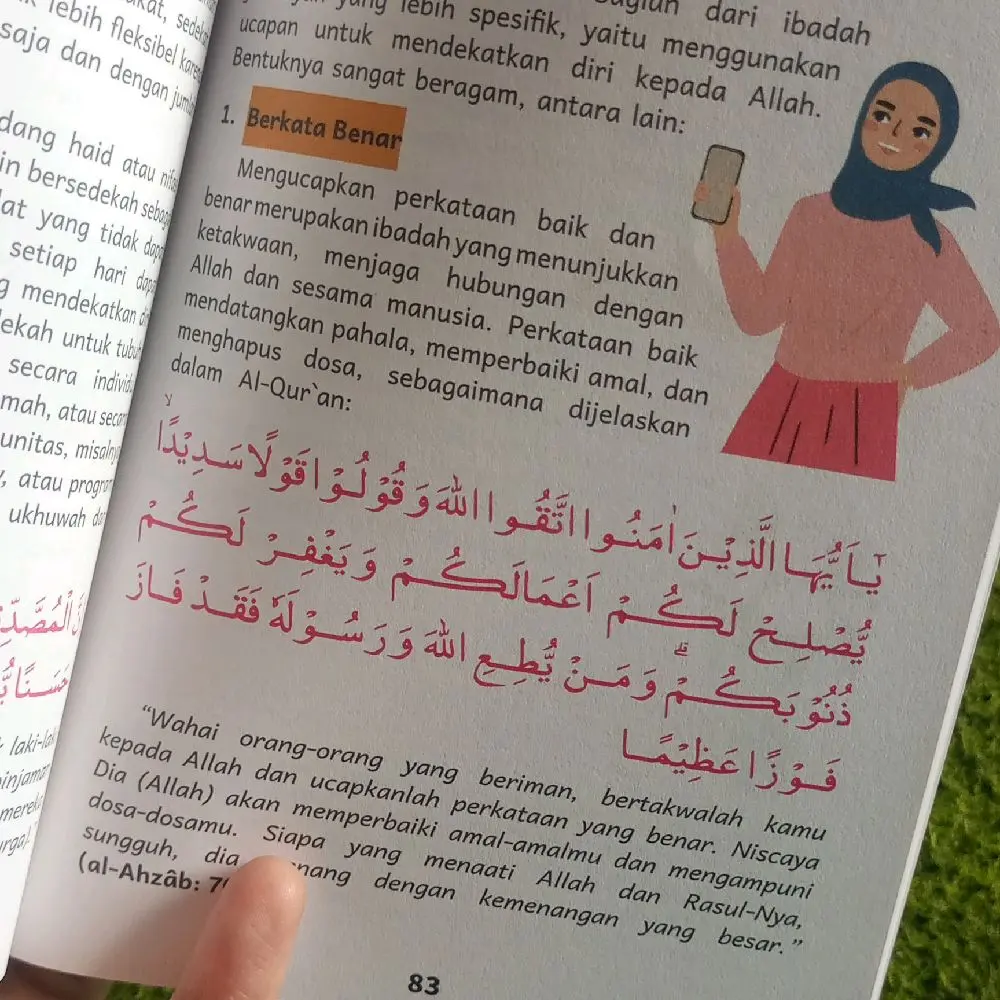 kat, sedek
lebih fleksibel kare
saja dan dengan juml
dang haid atau nif
in bersedekah sebag
lat yang tidak dap
setiap hari dap
g mendekatkan di
ekah untuk tubu
secara individ
mah, atau secar
unitas, misaln
, atau progra
ukhuwah da
الْمُصَّدِّ
حَسَنًا يُّ
laki-lak
injaman
mereka
urga!"
yang lebih spesifik, yaitu menggunakan
dari ibadah
ucapan untuk mendekatkan diri kepada Allah.
Bentuknya sangat beragam, antara lain:
1. Berkata Benar
Mengucapkan perkataan baik dan
benar merupakan ibadah yang menunjukkan
ketakwaan, menjaga hubungan dengan
Allah dan sesama manusia. Perkataan baik
mendatangkan pahala, memperbaiki amal, dan
menghapus dosa, sebagaimana dijelaskan
dalam Al-Qur`an:
يٰٓاَيُّهَا الَّذِيْنَ اٰمَنُوا اتَّقُوا اللّٰهَ وَقُوْلُوْا قَوْلًا سَدِيْدًاۙ
يُّصْلِحْ لَكُمْ اَعْمَالَكُمْ وَيَغْفِرْ لَكُمْ
ذُنُوْبَكُمْۗ وَمَنْ يُّطِعِ اللّٰهَ وَرَسُوْلَهٗ فَقَدْ فَازَ
فَوْزًا عَظِيْمًا
"Wahai orang-orang yang beriman, bertakwalah kamu
kepada Allah dan ucapkanlah perkataan yang benar. Niscaya
Dia (Allah) akan memperbaiki amal-amalmu dan mengampuni
dosa-dosamu. Siapa yang menaati Allah dan Rasul-Nya,
sungguh, dia nang dengan kemenangan yang besar."
(al-Ahzâb: 7
83